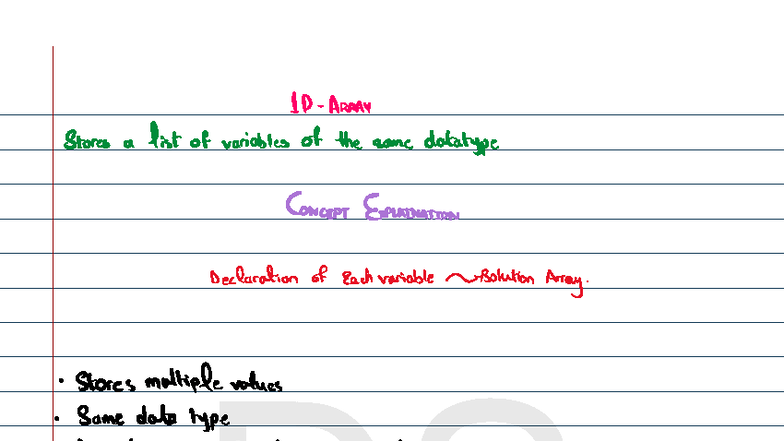 1D-ARRAY
Stores a list of variables of the same datatype
CONCEPT EXPLAINATION
Declaration of Each variable → Solution Array.
• Stores multiple values
• Same data type